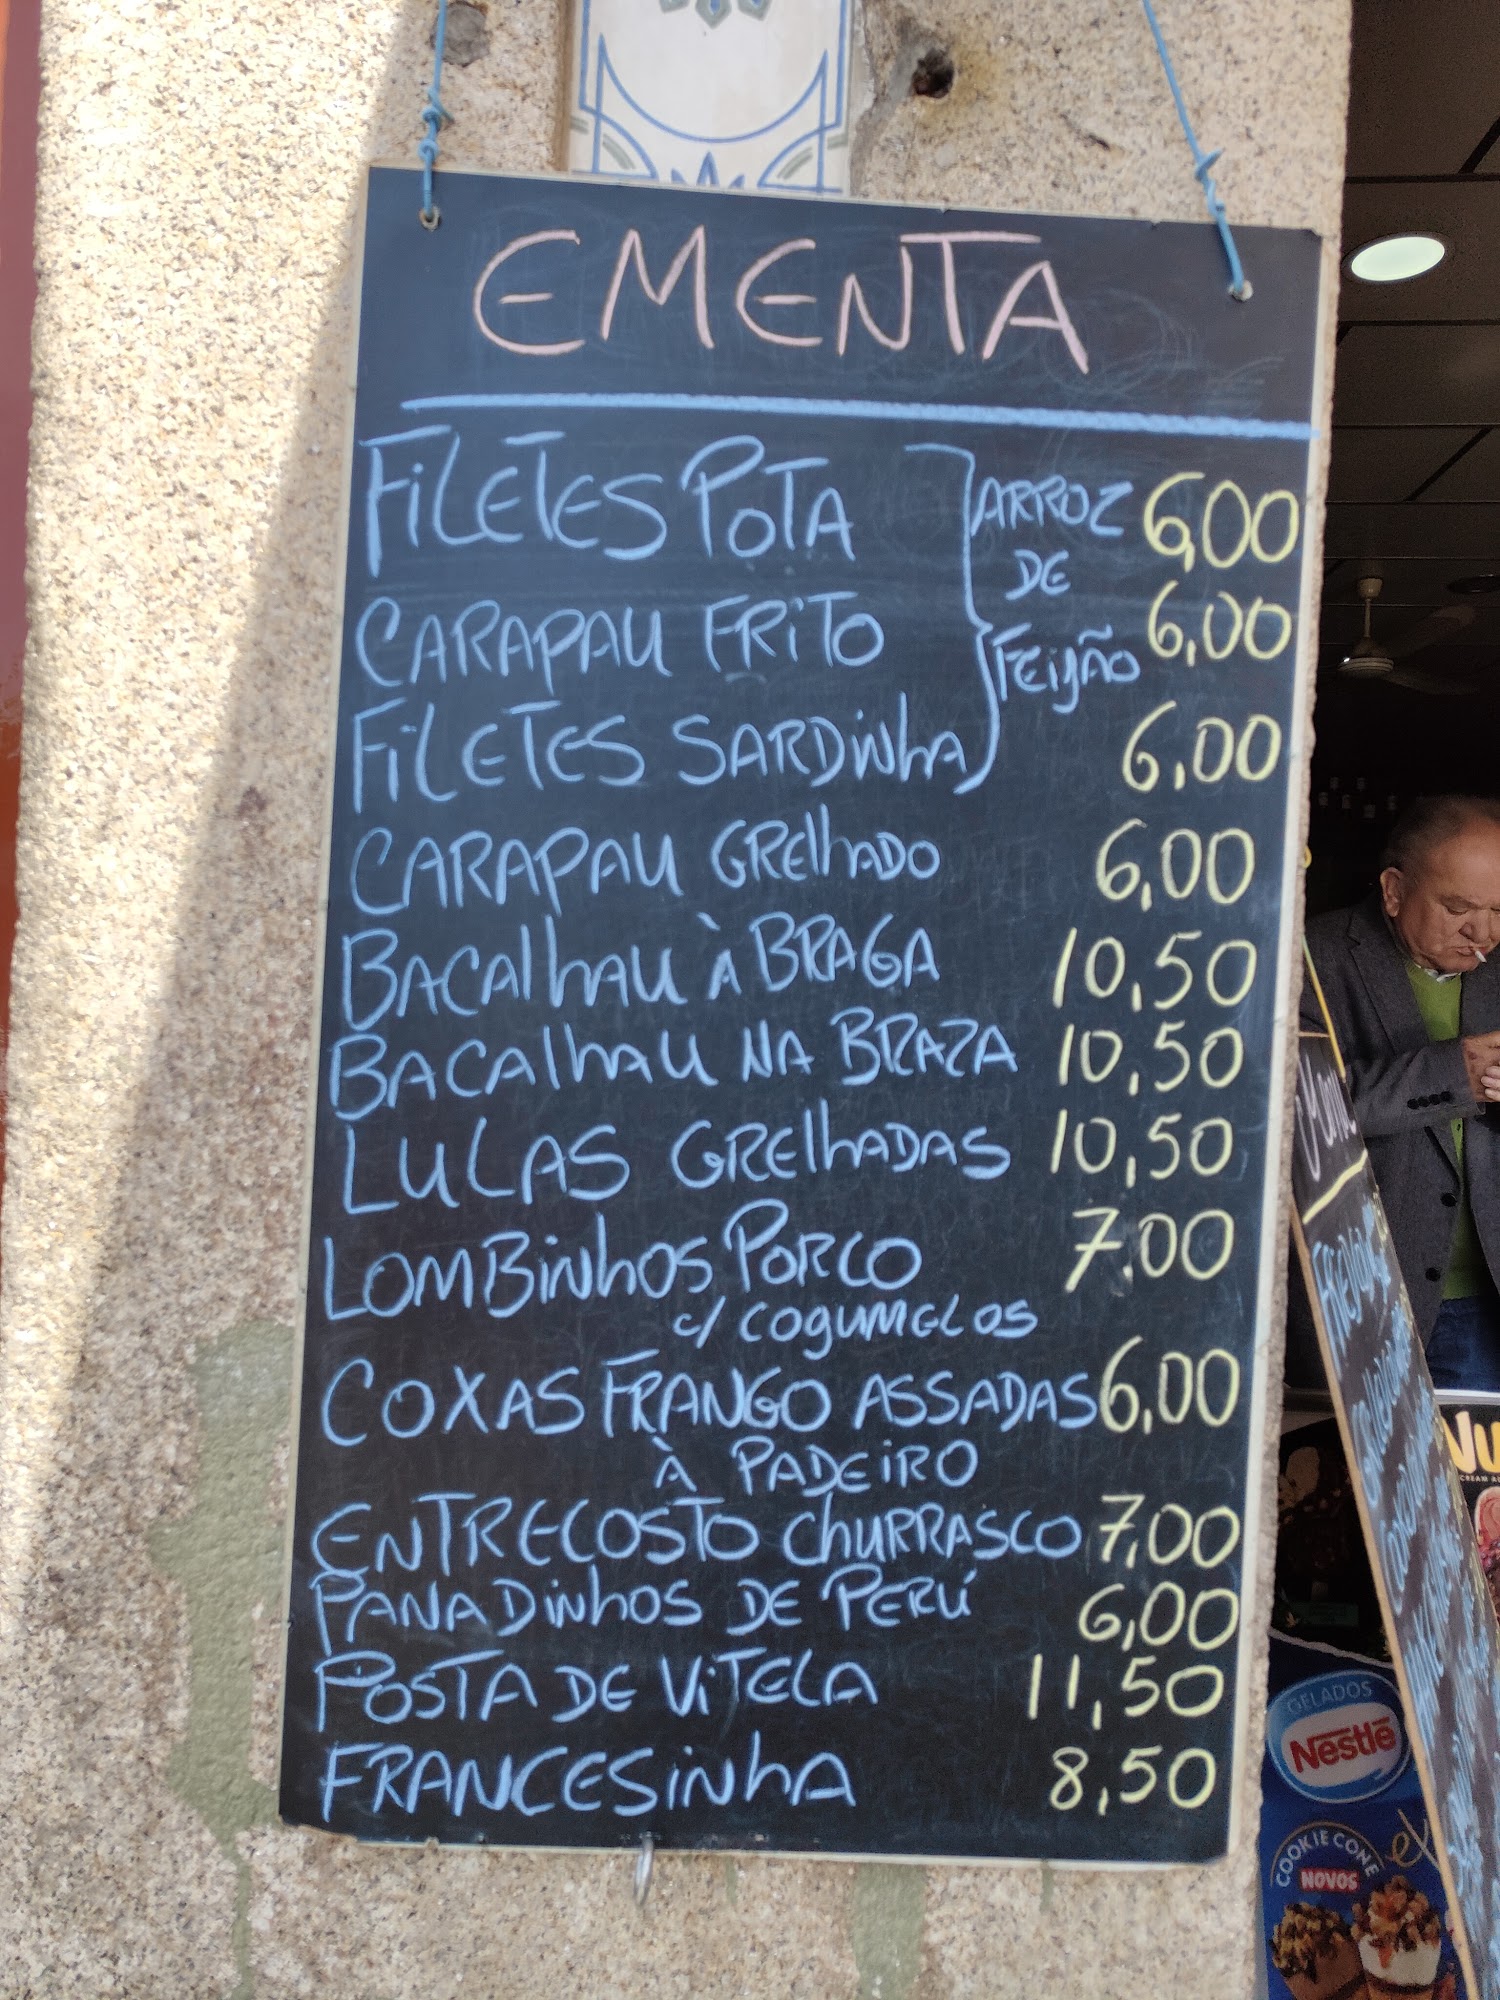 EMENTA
FILETES POTA } ARROZ DE FEIJÃO 6,00
CARAPAU FRITO 6,00
FILETES SARDINHA 6,00
CARAPAU GRELHADO 6,00
BACALHAU À BRAGA 10,50
BACALHAU NA BRAZA 10,50
LULAS GRELHADAS 10,50
LOMBINHOS PORCO 7.00
c/ COGUMELOS
COXAS FRANGO ASSADAS 6,00
À PADEIRO
ENTRECOSTO CHURRASCO 7,00
PANADINHOS DE PERÚ 6,00
POSTA DE VITELA 11,50
FRANCESINHA 8,50
GELADOS
Nestlé
COOKIE CONE
NOVOS